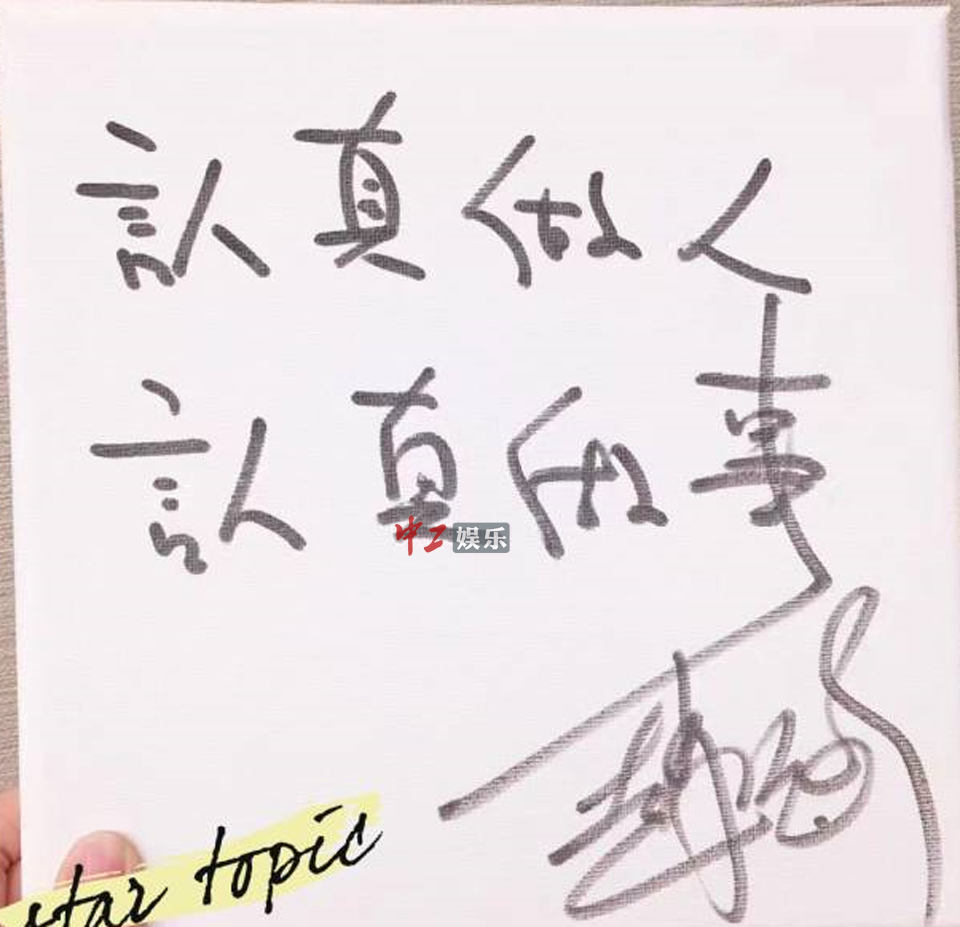 認真做人
認真做事
中工娱乐
star topic